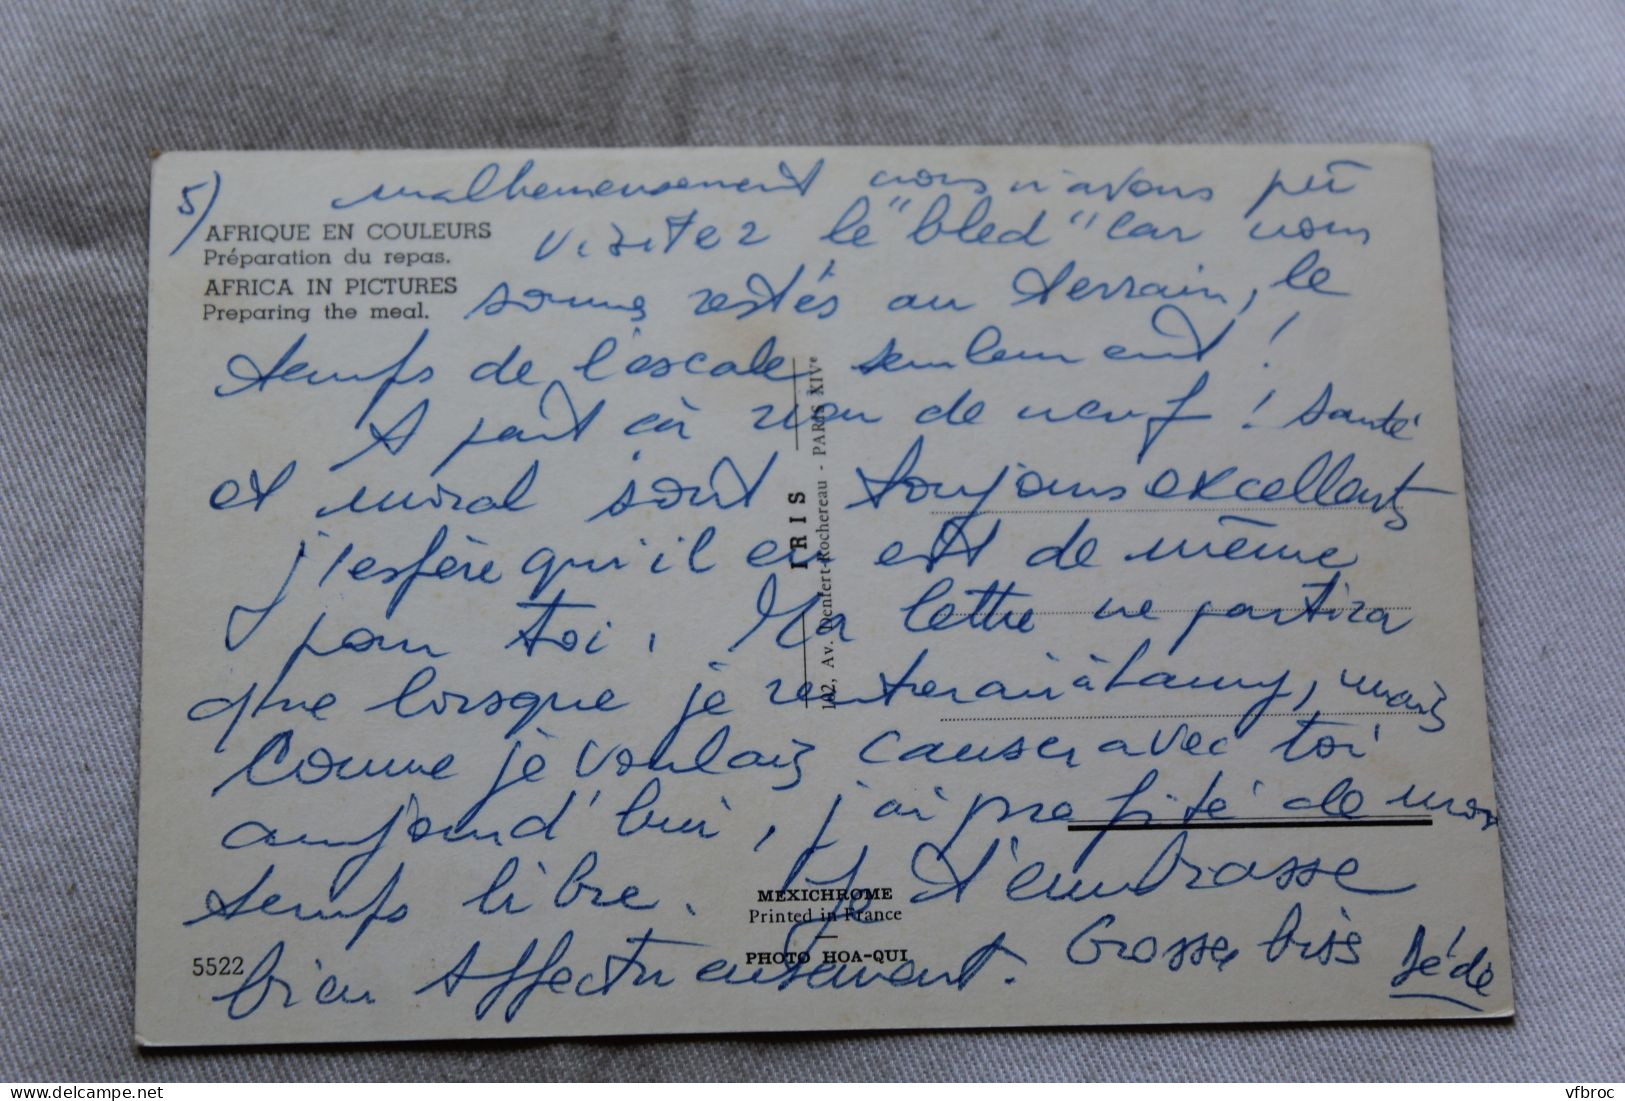 5) malheureusement nous n'avons pû
AFRIQUE EN COULEURS
Préparation du repas.
AFRICA IN PICTURES
Preparing the meal.
visiter le "bled" car nous
somme restés au terrain, le
temps de l'escale seulement !
A part çà rien de neuf ! Santé
et moral sont toujours excellents
j'espère qu'il en est de même
pour toi. Ma lettre ne partira
que lorsque je rentrerai à Lamy, mais
comme je voulais causer avec toi
aujourd'hui, j'ai profité de mon
temps libre. Je t'embrasse
bien affectueusement. Grosse biss Dédé
IRIS
102, Av. Denfert-Rochereau - PARIS XIVe
MEXICHROME
Printed in France
PHOTO HOA-QUI
5522
vfbroc